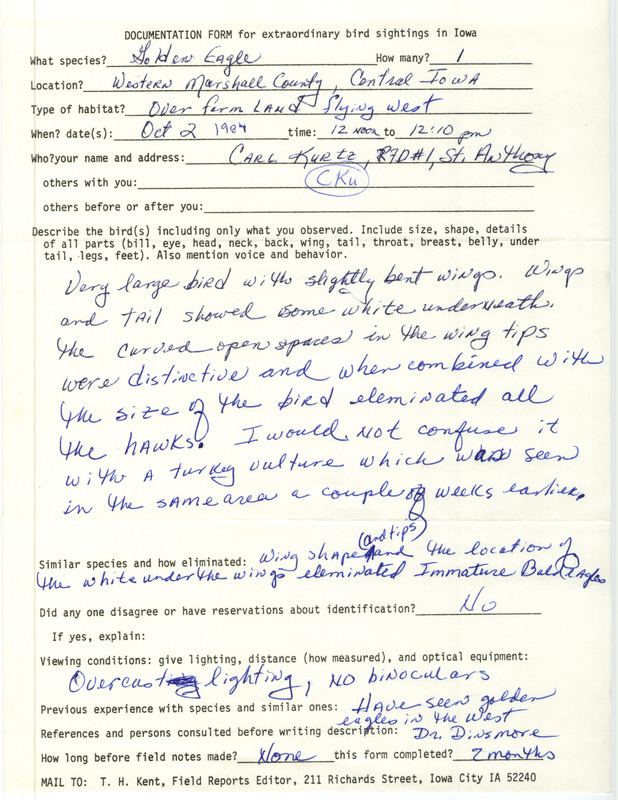 DOCUMENTATION FORM for extraordinary bird sightings in Iowa
What species? Golden Eagle How many? 1
Location? Western Marshall County, Central Iowa
Type of habitat? Over farm LAND flying west
When? date(s): Oct 2 1984 time: 12 NOON to 12:10 pm
Who?your name and address: CARL KURTZ, RFD#1, St. Anthony
others with you: CKu
others before or after you:
Describe the bird(s) including only what you observed. Include size, shape, details
of all parts (bill, eye, head, neck, back, wing, tail, throat, breast, belly, under
tail, legs, feet). Also mention voice and behavior.
Very large bird with slightly bent wings. Wings
and tail showed some white underneath.
The curved open spaces in the wing tips
were distinctive and when combined with
the size of the bird eleminated all
the hawks. I would not confuse it
with a turkey vulture which was seen
in the same area a couple of weeks earlier.
Similar species and how eliminated: wing shape (and tips) and the location of
the white under the wings eleminated Immature Bald Eagles
Did any one disagree or have reservations about identification? No
If yes, explain:
Viewing conditions: give lighting, distance (how measured), and optical equipment:
Overcast lighting, NO binoculars
Previous experience with species and similar ones: Have seen golden
eagles in the west
References and persons consulted before writing description: Dr. Dinsmore
How long before field notes made? None this form completed? 2 months
MAIL TO: T. H. Kent, Field Reports Editor, 211 Richards Street, Iowa City IA 52240